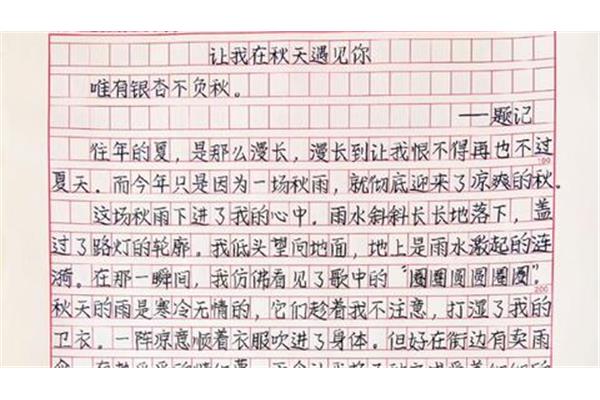 让我在秋天遇见你
唯有银杏不负秋。
——题记
往年的夏，是那么漫长，漫长到让我恨不得再也不过
100
夏天。而今年只是因为一场秋雨，就彻底迎来了凉爽的秋。
这场秋雨下进了我的心中。雨水斜斜长长地落下，盖
过了路灯的轮廓。我低头望向地面，地上是雨水激起的涟
漪。在那一瞬间，我仿佛看见了歌中的“圈圈圆圆圈圈”。
200
秋天的雨是寒冷无情的，它们趁着我不注意，打湿了我的
卫衣。一阵凉意顺着衣服吹进了身体。但好在街边有卖雨